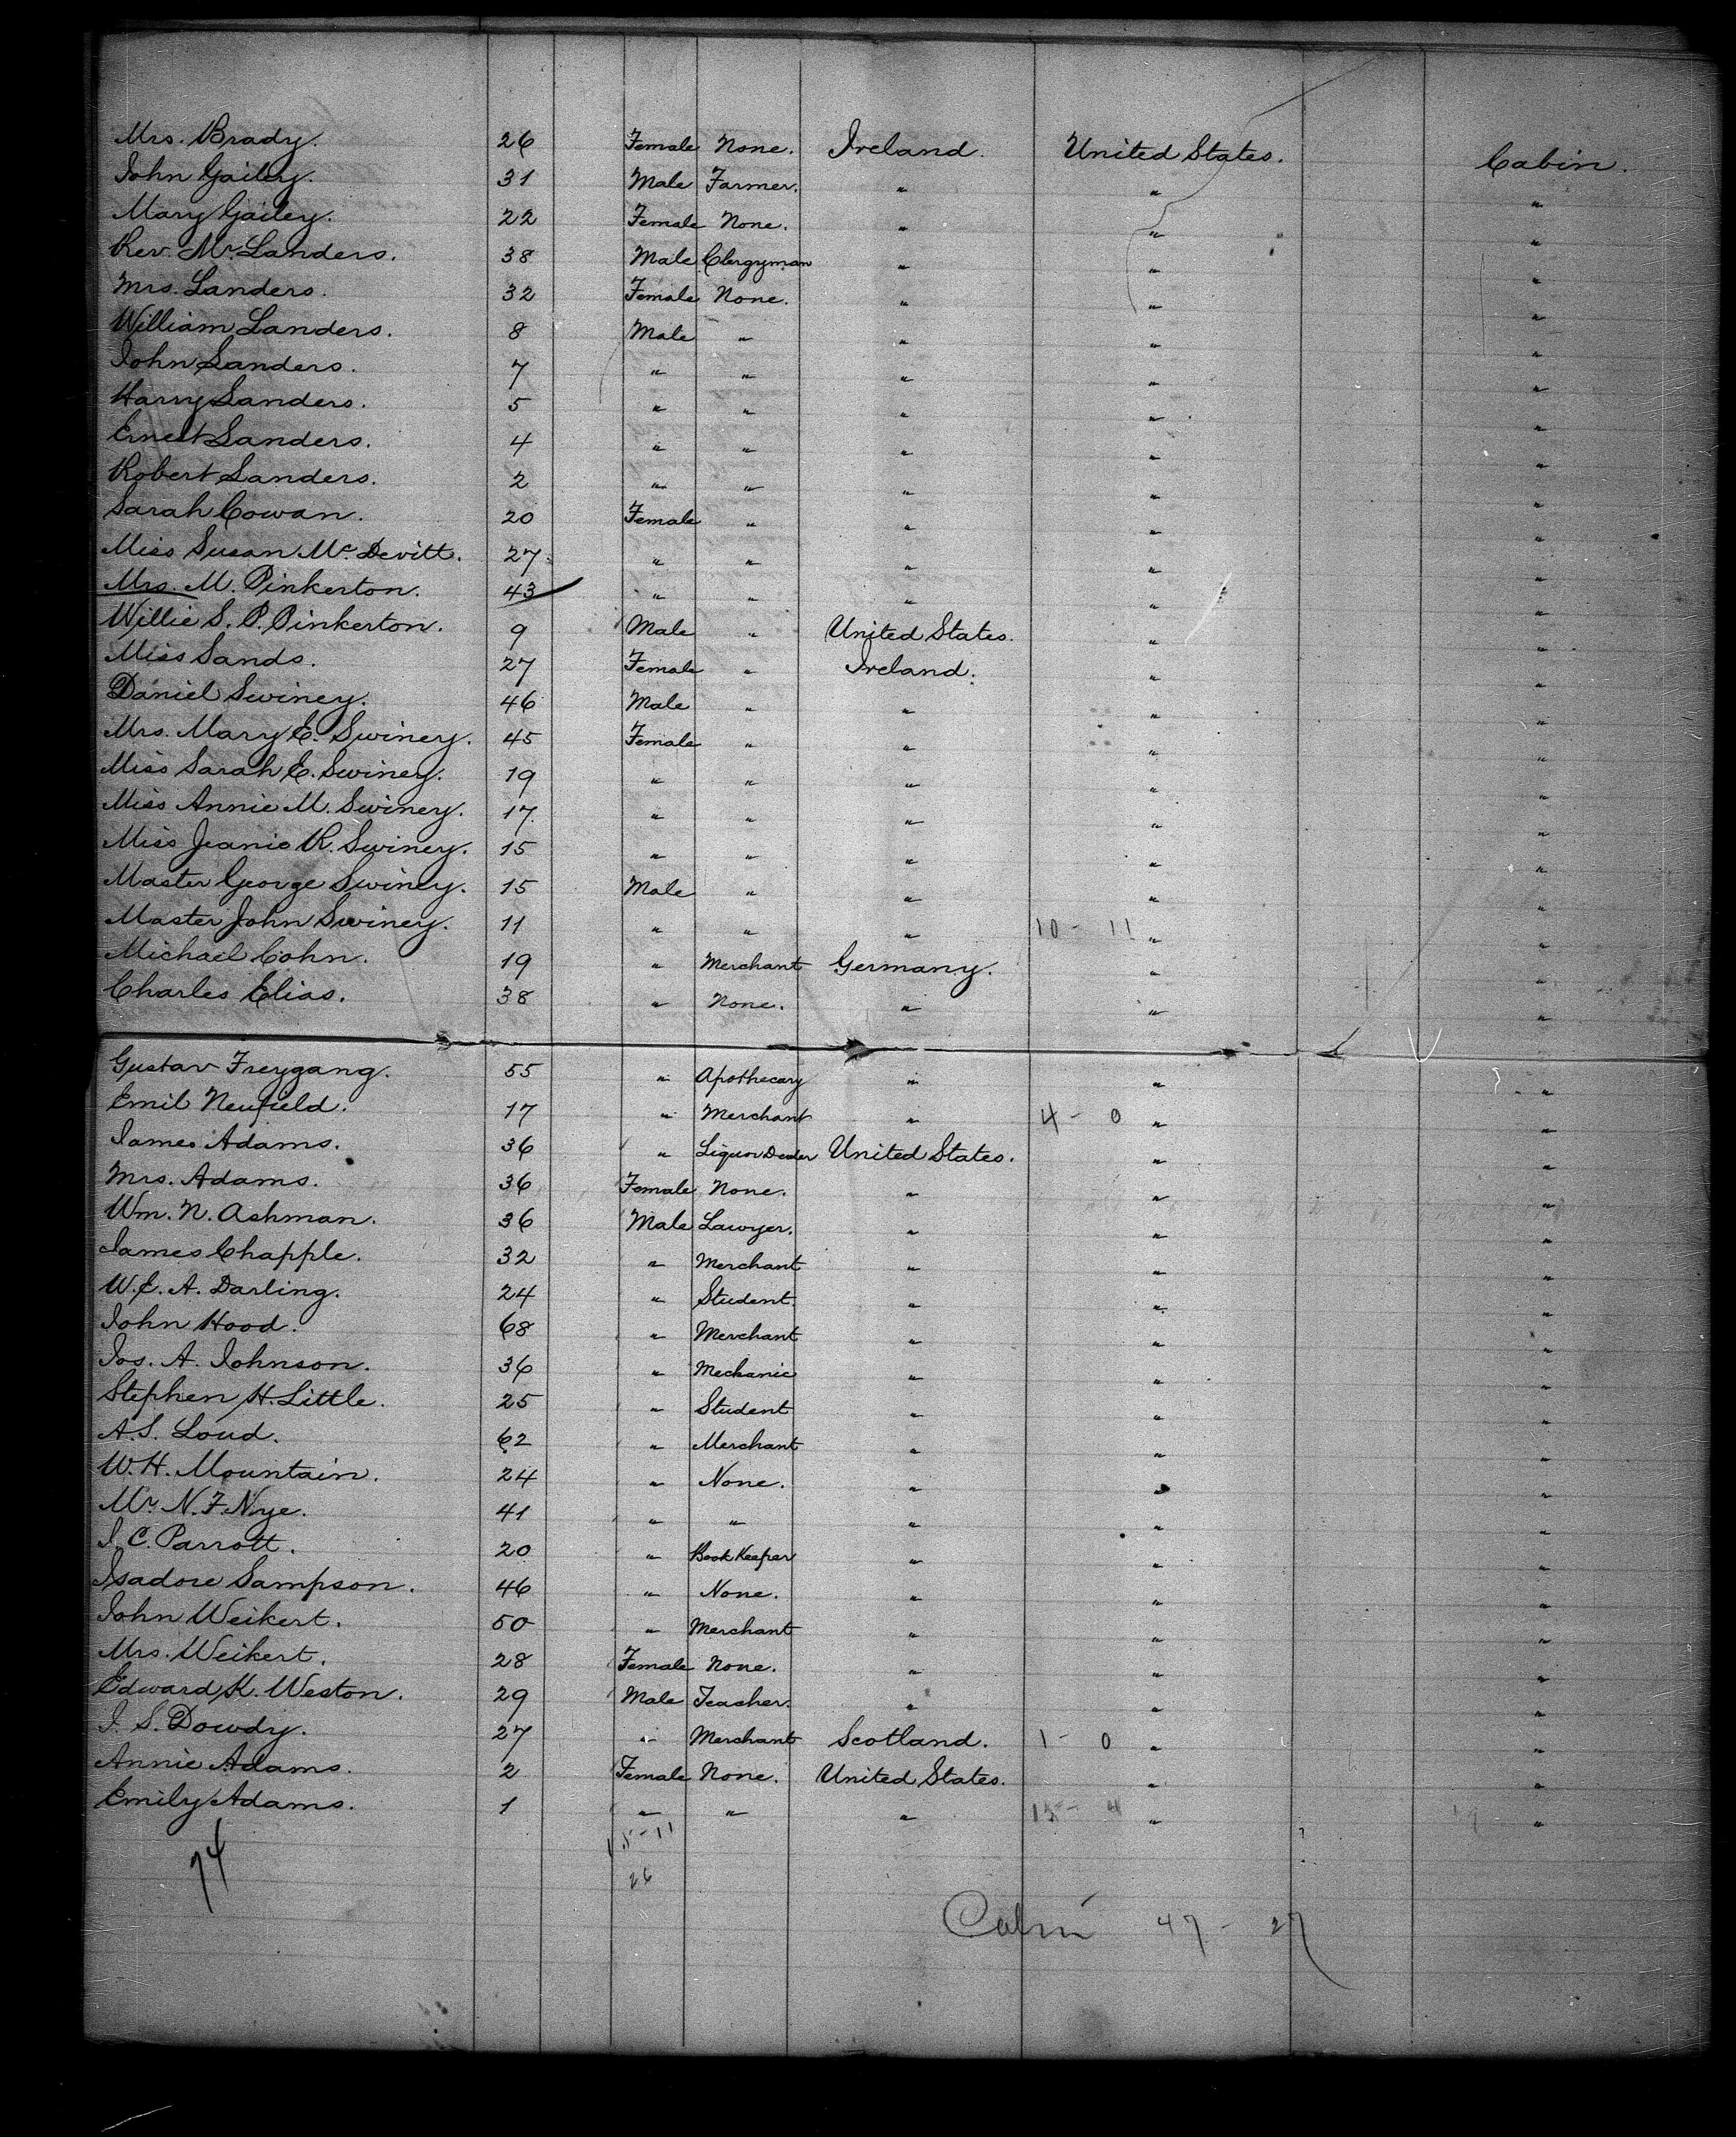 Mrs. Brady. 26 Female None. Ireland. United States. Cabin.
John Gailey. 31 Male Farmer. " " "
Mary Gailey. 22 Female None. " " "
Rev. Mr. Landers. 38 Male Clergyman " " "
Mrs. Landers. 32 Female None. " " "
William Landers. 8 Male " " " "
John Landers. 7 " " " " "
Harry Landers. 5 " " " " "
Ernest Landers. 4 " " " " "
Robert Landers. 2 " " " " "
Sarah Cowan. 20 Female " " " "
Miss Susan Mc. Devitt. 27 " " " " "
Mrs. M. Pinkerton. 43 " " " " "
Willie S. P. Pinkerton. 9 Male " United States. " "
Miss Sands. 27 Female " Ireland. " "
Daniel Swiney. 46 Male " " " "
Mrs. Mary E. Swiney. 45 Female " " " "
Miss Sarah E. Swiney. 19 " " " " "
Miss Annie M. Swiney. 17. " " " " "
Miss Jeanie R. Swiney. 15 " " " " "
Master George Swiney. 15 Male " " " "
Master John Swiney. 11 " " " 10 - 11 " "
Michael Cohn. 19 " Merchant Germany. " "
Charles Elias. 38 " None. " " "
Gustav Freygang. 55 " Apothecary " " "
Emil Neufield. 17 " Merchant " 4 - 0 " "
James Adams. 36 " Liquor Dealer United States. " "
Mrs. Adams. 36 Female None. " " "
Wm. N. Ashman. 36 Male Lawyer. " " "
James Chapple. 32 " Merchant " " "
W. E. A. Darling. 24 " Student. " " "
John Hood. 68 " Merchant " " "
Jos. A. Johnson. 36 " Mechanic " " "
Stephen H. Little. 25 " Student " " "
A. S. Loud. 62 " Merchant " " "
W. H. Mountain. 24 " None. " " "
Mr. N. F. Nye. 41 " " " " "
J. C. Parrott. 20 " Book Keeper " " "
Isadore Sampson. 46 " None. " " "
John Weikert. 50 " Merchant " " "
Mrs. Weikert. 28 Female None. " " "
Edward K. Weston. 29 Male Teacher. " " "
J. S. Dowdy. 27 " Merchant Scotland. 1 - 0 " "
Annie Adams. 2 Female None. United States. " "
Emily Adams. 1 " " " 15 - 4 " "
15 - 11
74 26
Cabin 47 - 27